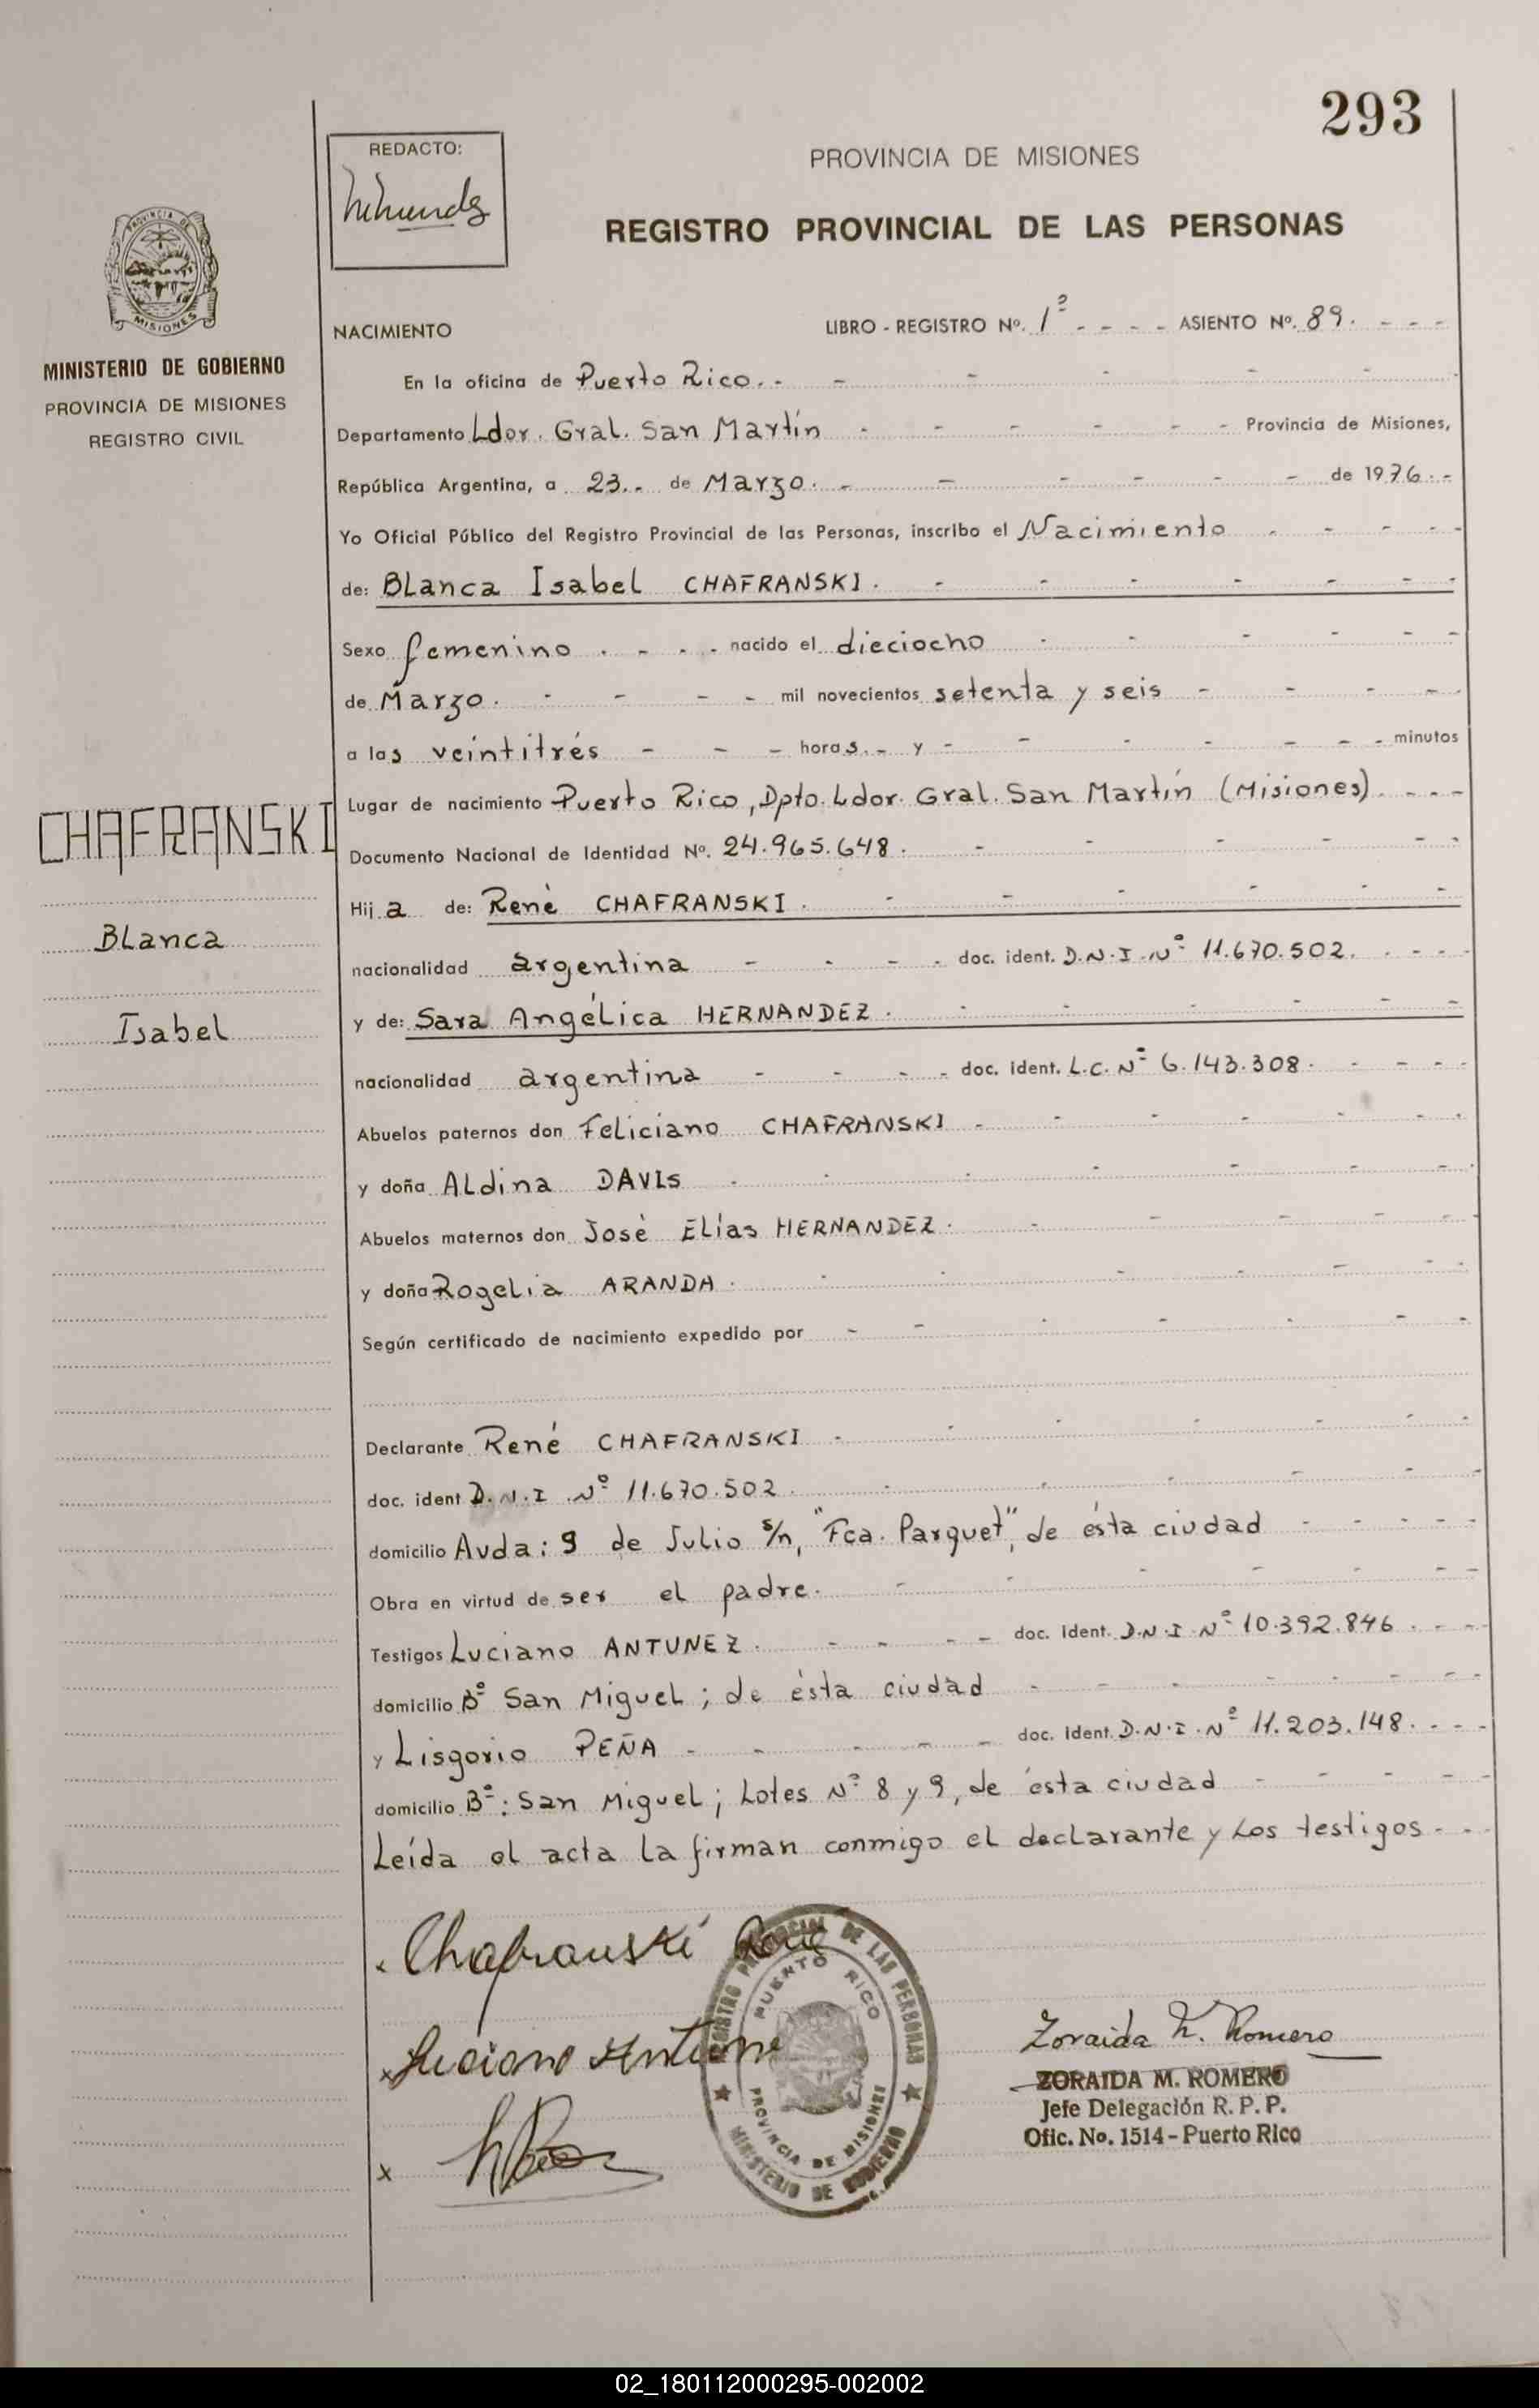 293
REDACTO:
PROVINCIA DE MISIONES
REGISTRO PROVINCIAL DE LAS PERSONAS
PROVINCIA DE
MISIONES
MINISTERIO DE GOBIERNO
PROVINCIA DE MISIONES
REGISTRO CIVIL
NACIMIENTO LIBRO - REGISTRO Nº. 1º - - - - ASIENTO Nº. 89. - - -
En la oficina de Puerto Rico. - - - - - - -
Departamento Ldor. Gral. San Martín - - - - - - Provincia de Misiones,
República Argentina, a 23.- de Marzo. - - - - - - de 1976.-
Yo Oficial Público del Registro Provincial de las Personas, inscribo el Nacimiento - - - - -
de: BLanca Isabel CHAFRANSKI. - - - - - - -
Sexo femenino . - - - nacido el dieciocho - - - - - -
de Marzo. - - - - mil novecientos setenta y seis - - - - -
a las veintitrés - - - horas.- y - - - - - - - minutos
Lugar de nacimiento Puerto Rico, Dpto. Ldor. Gral. San Martín (Misiones). - - -
Documento Nacional de Identidad Nº. 24.965.648. - - - - -
Hija de: René CHAFRANSKI. - - - - - -
nacionalidad argentina - - - - doc. ident. D.N.I. Nº 11.670.502. - - - -
y de: Sara AngéLica HERNANDEZ. - - - - - -
nacionalidad argentina - - - - doc. ident. L.C. Nº 6.143.308. - - - -
Abuelos paternos don FeLiciano CHAFRANSKI - - - - - -
y doña ALdina DAVIS - - - - - - -
Abuelos maternos don José ELías HERNANDEZ. - - - - -
y doña RogeLia ARANDA. - - - - - - -
Según certificado de nacimiento expedido por - - - - - - -
Declarante René CHAFRANSKI - - - - - - -
doc. ident D.N.I. Nº 11.670.502. - - - - -
domicilio Avda: 9 de Julio s/n, "Fca. Parquet", de ésta ciudad - - - - -
Obra en virtud de ser el padre. - - - - - - -
Testigos Luciano ANTUNEZ. - - - - doc. ident. D.N.I. Nº 10.392.846. - - -
domicilio Bº San MigueL; de ésta ciudad - - - - - - -
y Lisgorio PEÑA - - - - - doc. ident. D.N.I. Nº 11.203.148. - - -
domicilio Bº: San MigueL; Lotes Nº 8 y 9, de ésta ciudad - - - - -
Leída el acta La firman conmigo eL declarante y Los testigos. - -
CHAFRANSKI
BLanca
Isabel
Chafranski René
Luciano Antune
REGISTRO PROVINCIAL DE LAS PERSONAS
PUERTO RICO
PROVINCIA DE MISIONES
MINISTERIO DE GOBIERNO
Zoraida M. Romero
ZORAIDA M. ROMERO
Jefe Delegación R. P. P.
Ofic. No. 1514 - Puerto Rico
02_180112000295-002002